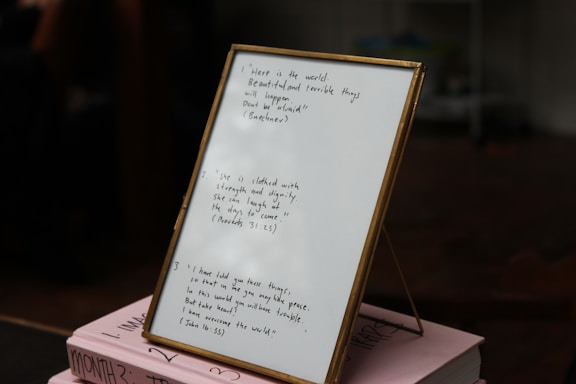 1. "Here is the world.
Beautiful and terrible things
will happen.
Dont be afraid"
(Buechner)
2. "She is clothed with
strength and dignity.
She can laugh at
the days to come."
(Proverbs 31:25)
3. "I have told you these things,
so that in me you may have peace.
In this world you will have trouble.
But take heart!
I have overcome the world."
(John 16:33)
1.
2
3
MONTH 3: